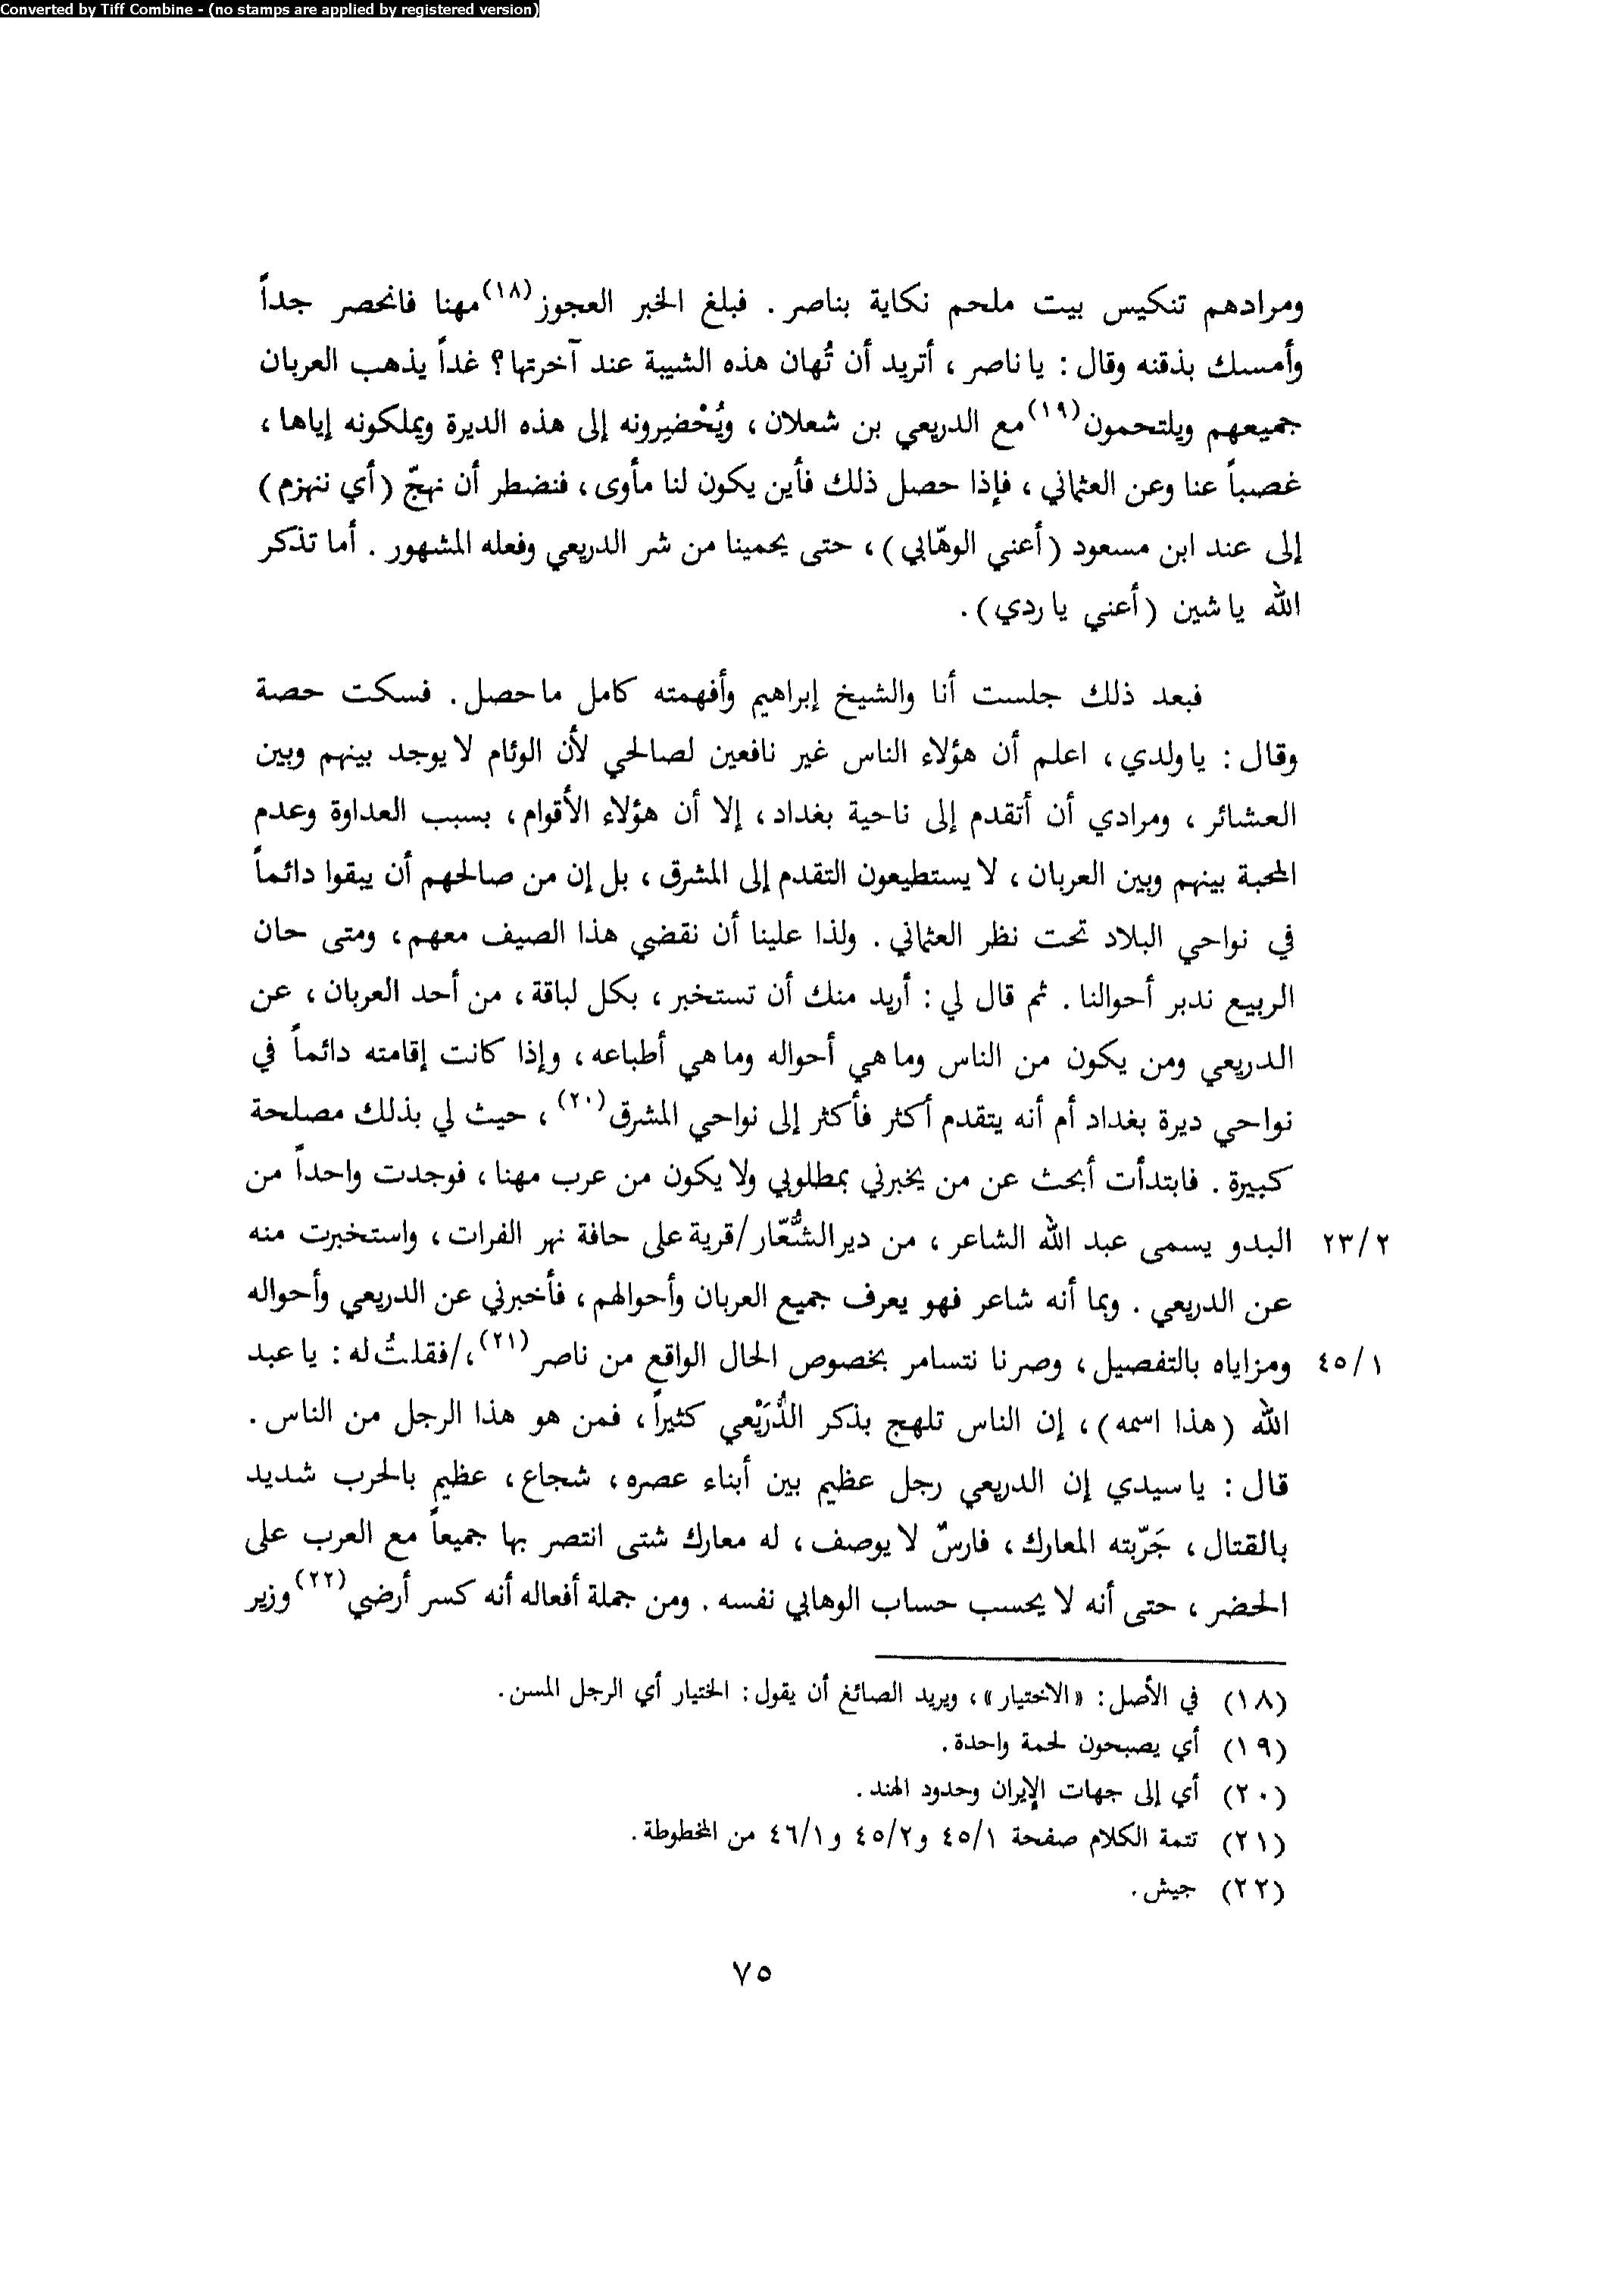 Converted by Tiff Combine - (no stamps are applied by registered version)
ومرادهم تنكيس بيت ملحم نكاية بناصر . فبلغ الخبر العجوز(١٨) مهنا فانحصر جداً
وأمسك بذقنه وقال : يا ناصر ، أتريد أن تُهان هذه الشيبة عند آخرتها؟ غداً يذهب العربان
جميعهم ويلتحمون(١٩) مع الدريعي بن شعلان ، ويُحْضيرونه إلى هذه الديرة ويملكونه إياها ،
غصباً عنا وعن العثماني ، فإذا حصل ذلك فأين يكون لنا مأوى ، فنضطر أن نهجّ (أي ننهزم)
إلى عند ابن مسعود (أعني الوهّابي) ، حتى يحمينا من شر الدريعي وفعله المشهور . أما تذكر
الله يا شين (أعني يا ردي) .
فبعد ذلك جلست أنا والشيخ إبراهيم وأفهمته كامل ما حصل . فسكت حصة
وقال : يا ولدي ، اعلم أن هؤلاء الناس غير نافعين لصالحي لأن الوئام لا يوجد بينهم وبين
العشائر ، ومرادي أن أتقدم إلى ناحية بغداد ، إلا أن هؤلاء الأقوام ، بسبب العداوة وعدم
المحبة بينهم وبين العربان ، لا يستطيعون التقدم إلى المشرق ، بل إن من صالحهم أن يبقوا دائماً
في نواحي البلاد تحت نظر العثماني . ولذا علينا أن نقضي هذا الصيف معهم ، ومتى حان
الربيع ندبر أحوالنا . ثم قال لي : أريد منك أن تستخبر ، بكل لباقة ، من أحد العربان ، عن
الدريعي ومن يكون من الناس وما هي أحواله وما هي أطباعه ، وإذا كانت إقامته دائماً في
نواحي ديرة بغداد أم أنه يتقدم أكثر فأكثر إلى نواحي المشرق(٢٠) ، حيث لي بذلك مصلحة
كبيرة . فابتدأت أبحث عن من يخبرني بمطلوبي ولا يكون من عرب مهنا ، فوجدت واحداً من
٢٣/٢ البدو يسمى عبد الله الشاعر ، من دير الشُّعّار / قرية على حافة نهر الفرات ، واستخبرت منه
عن الدريعي . وبما أنه شاعر فهو يعرف جميع العربان وأحوالهم ، فأخبرني عن الدريعي وأحواله
٤٥/١ ومزاياه بالتفصيل ، وصرنا نتسامر بخصوص الحال الواقع من ناصر(٢١) ،/ فقلتُ له : يا عبد
الله (هذا اسمه) ، إن الناس تلهج بذكر الدُّرَيْعي كثيراً ، فمن هو هذا الرجل من الناس .
قال : يا سيدي إن الدريعي رجل عظيم بين أبناء عصره ، شجاع ، عظيم بالحرب شديد
بالقتال ، جَرّبته المعارك ، فارسٌ لا يوصف ، له معارك شتى انتصر بها جميعاً مع العرب على
الحضر ، حتى أنه لا يحسب حساب الوهابي نفسه . ومن جملة أفعاله أنه كسر أرضي(٢٢) وزير
(١٨) في الأصل : «الاختيار» ، ويريد الصائغ أن يقول : الختيار أي الرجل المسن .
(١٩) أي يصبحون لحمة واحدة .
(٢٠) أي إلى جهات الإيران وحدود الهند .
(٢١) تتمة الكلام صفحة ٤٥/١ و٤٥/٢ و٤٦/١ من المخطوطة .
(٢٢) جيش .
٧٥